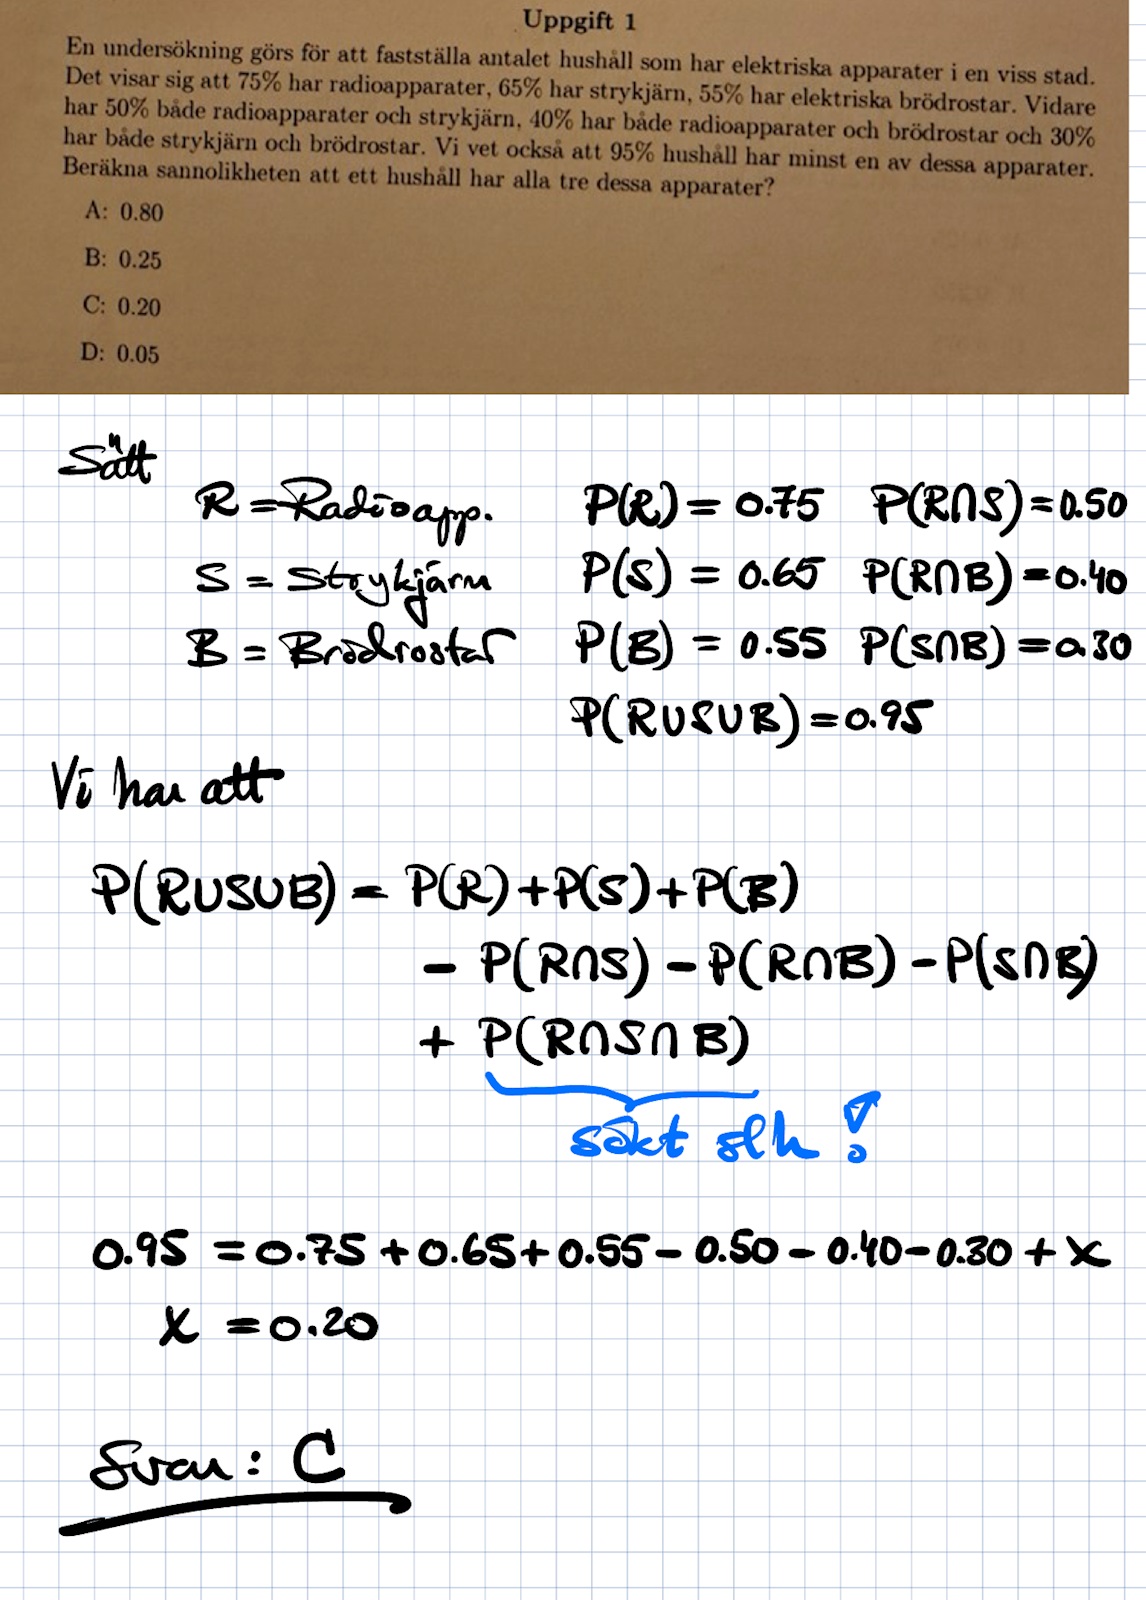 Uppgift 1
En undersökning görs för att fastställa antalet hushåll som har elektriska apparater i en viss stad.
Det visar sig att 75% har radioapparater, 65% har strykjärn, 55% har elektriska brödrostar. Vidare
har 50% både radioapparater och strykjärn, 40% har både radioapparater och brödrostar och 30%
har både strykjärn och brödrostar. Vi vet också att 95% hushåll har minst en av dessa apparater.
Beräkna sannolikheten att ett hushåll har alla tre dessa apparater?
A: 0.80
B: 0.25
C: 0.20
D: 0.05
Sätt
R = Radioapp. P(R) = 0.75 P(R∩S) = 0.50
S = Strykjärn P(S) = 0.65 P(R∩B) = 0.40
B = Brödrostar P(B) = 0.55 P(S∩B) = 0.30
P(R∪S∪B) = 0.95
Vi har att
P(R∪S∪B) = P(R) + P(S) + P(B)
- P(R∩S) - P(R∩B) - P(S∩B)
+ P(R∩S∩B)
sökt slh !
0.95 = 0.75 + 0.65 + 0.55 - 0.50 - 0.40 - 0.30 + x
x = 0.20
Svar: C